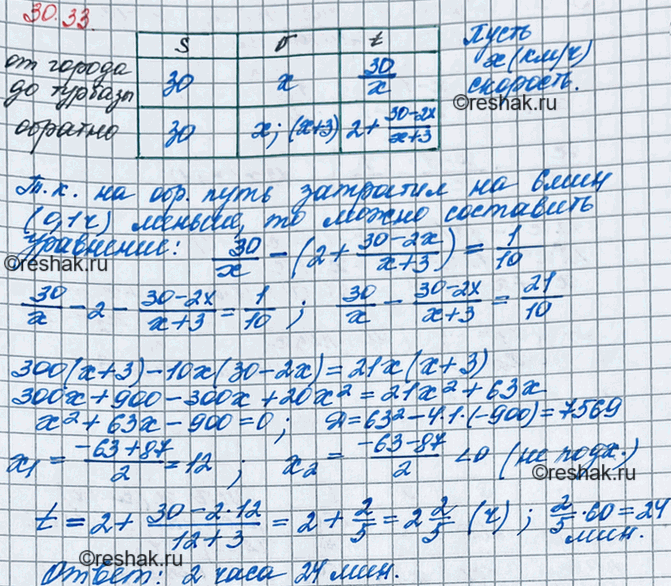 30.33.
S v t
от города до турбазы 30 x 30/x
обратно 30 x; (x+3) 2+(30-2x)/(x+3)
Пусть
x (км/ч)
скорость.
©reshak.ru
Т.к. на обр. путь затратил на 6 мин
(0,1 ч) меньше, то можно составить
уравнение: 30/x - (2 + (30-2x)/(x+3)) = 1/10
©reshak.ru
30/x - 2 - (30-2x)/(x+3) = 1/10 ; 30/x - (30-2x)/(x+3) = 21/10
300(x+3) - 10x(30-2x) = 21x(x+3)
300x + 900 - 300x + 20x² = 21x² + 63x
x² + 63x - 900 = 0 ; Д = 63² - 4·1·(-900) = 7569
x₁ = (-63+87)/2 = 12 ; x₂ = (-63-87)/2 < 0 (не подх.)
©reshak.ru
t = 2 + (30-2·12)/(12+3) = 2 + 2/5 = 2 2/5 (ч) ; 2/5 · 60 = 24
мин.
©reshak.ru
Ответ: 2 часа 24 мин.